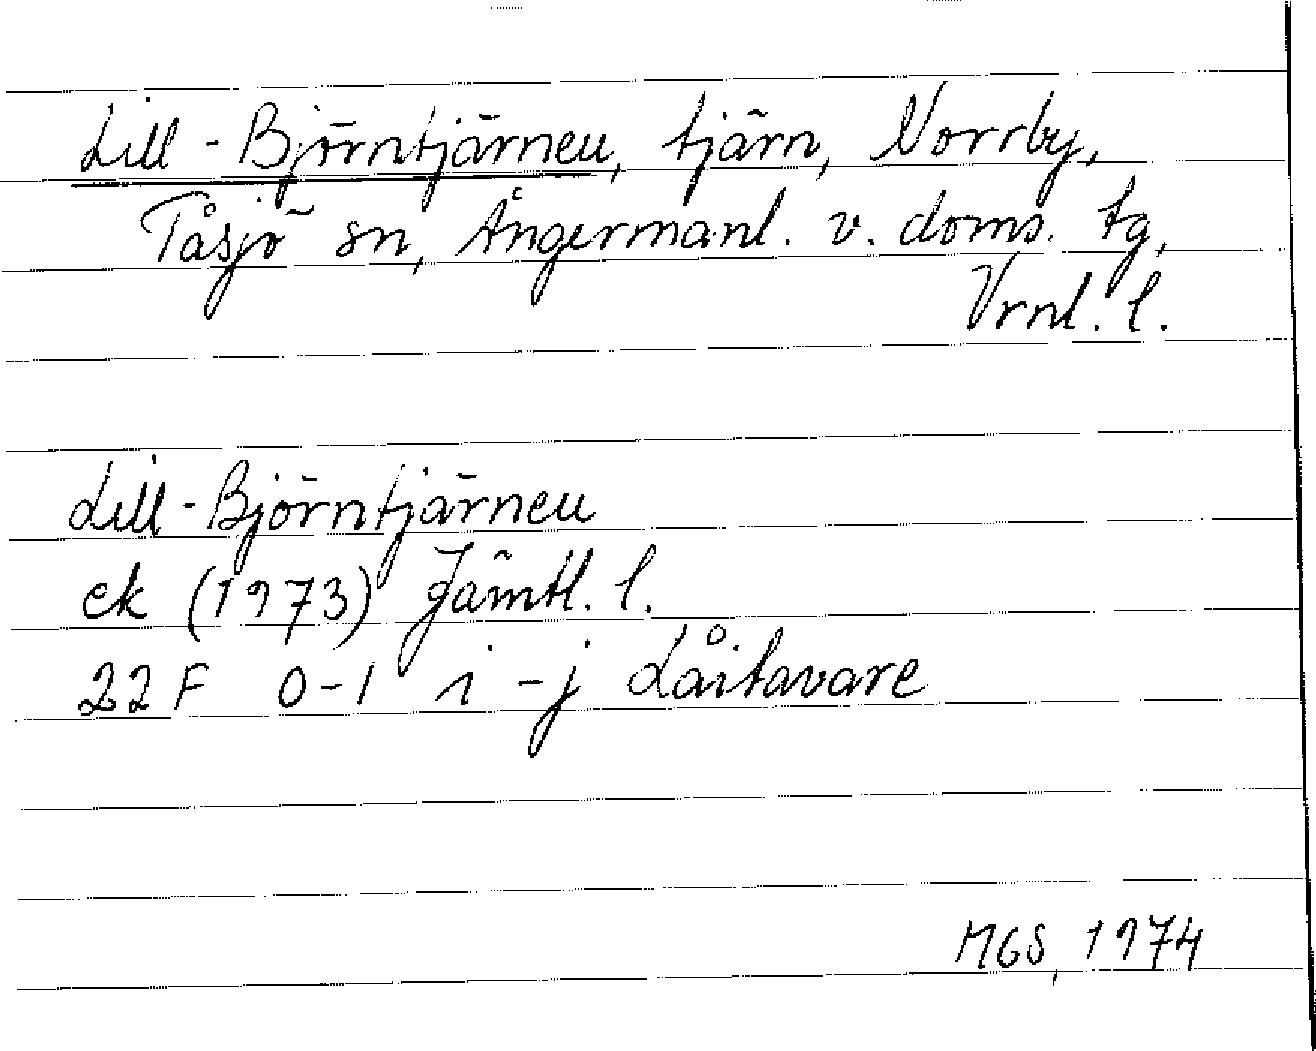 Lill-Björntjärnen, tjärn, Norrby,
Tåsjö sn, Ångermanl. v. doms. tg,
Vrnl. l.
Lill-Björntjärnen
ek (1973) Jämtl. l.
22 F 0-1 i-j Låitavare
MGS, 1974